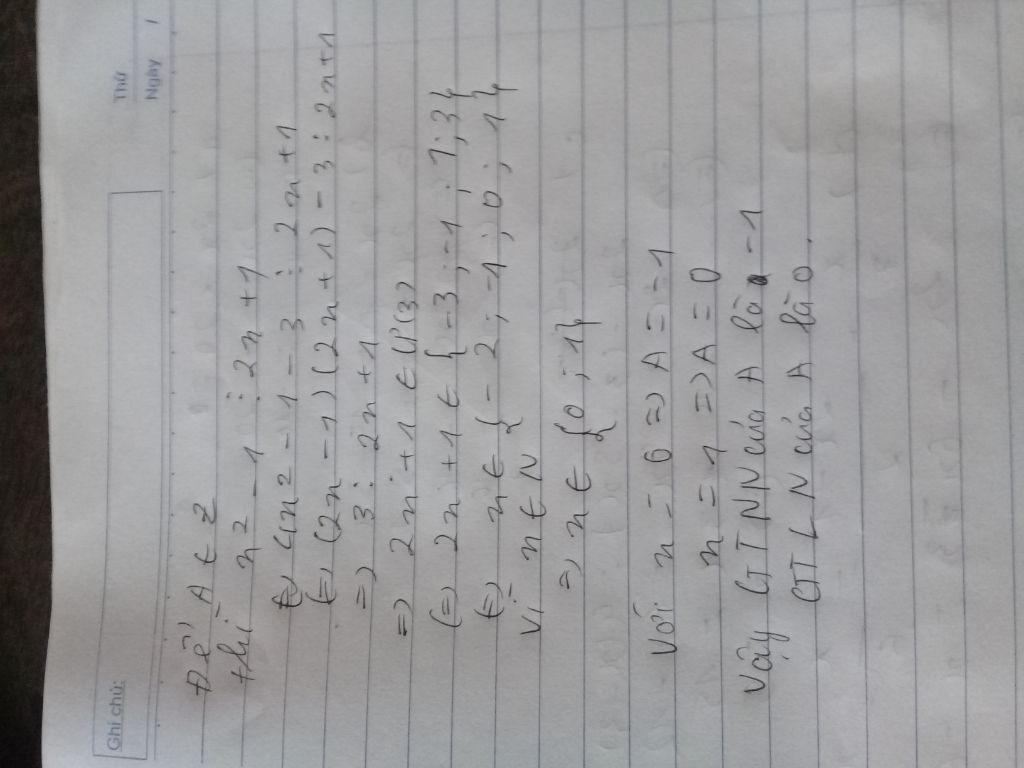 Ghi chú:
Thứ
Ngày
Để A ∈ Z
thì n2 - 1 ⋮ 2n + 1
(=) 4n2 - 1 - 3 ⋮ 2n + 1
(=) (2n - 1) (2n + 1) - 3 ⋮ 2n + 1
=) 3 ⋮ 2n + 1
=) 2n + 1 ∈ Ư(3)
(=) 2n + 1 ∈ { -3 ; -1 ; 1 ; 3 }
(=) n ∈ { -2 ; -1 ; 0 ; 1 }
Vì n ∈ N
=) n ∈ { 0 ; 1 }
Với n = 0 =) A = -1
n = 1 =) A = 0
Vậy GTNN của A là -1
GTLN của A là 0.